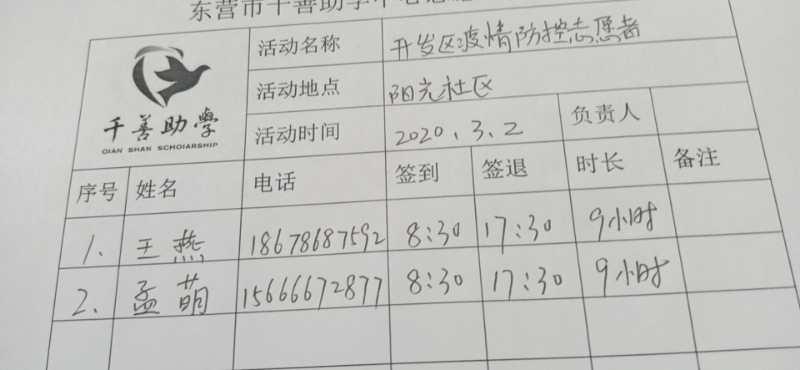 东营市千善助学中心志愿
千善助学
QIAN SHAN SCHOIARSHIP
活动名称 开发区疫情防控志愿者
活动地点 阳光社区
活动时间 2020.3.2 负责人
序号 姓名 电话 签到 签退 时长 备注
1. 王燕 18678687592 8:30 17:30 9小时
2. 孟萌 15666672877 8:30 17:30 9小时